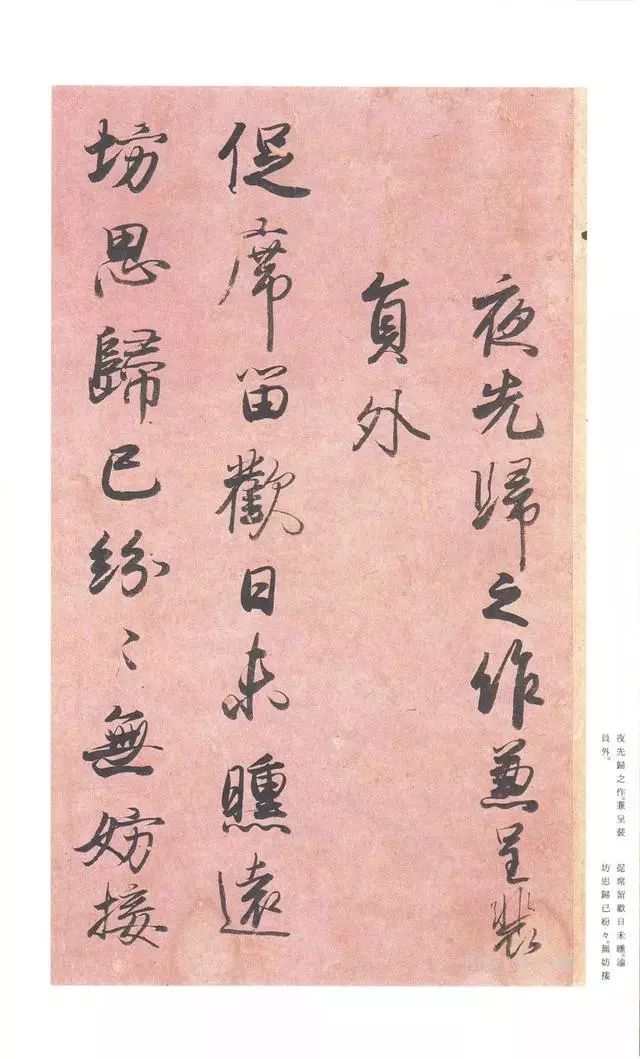 夜先歸之作兼呈裴
員外
促席留歡日未曛遠
坊思歸已紛〻無妨接
夜先歸之作。兼呈裴
員外。
促席留歡日未曛。遠
坊思歸已紛々。無妨接